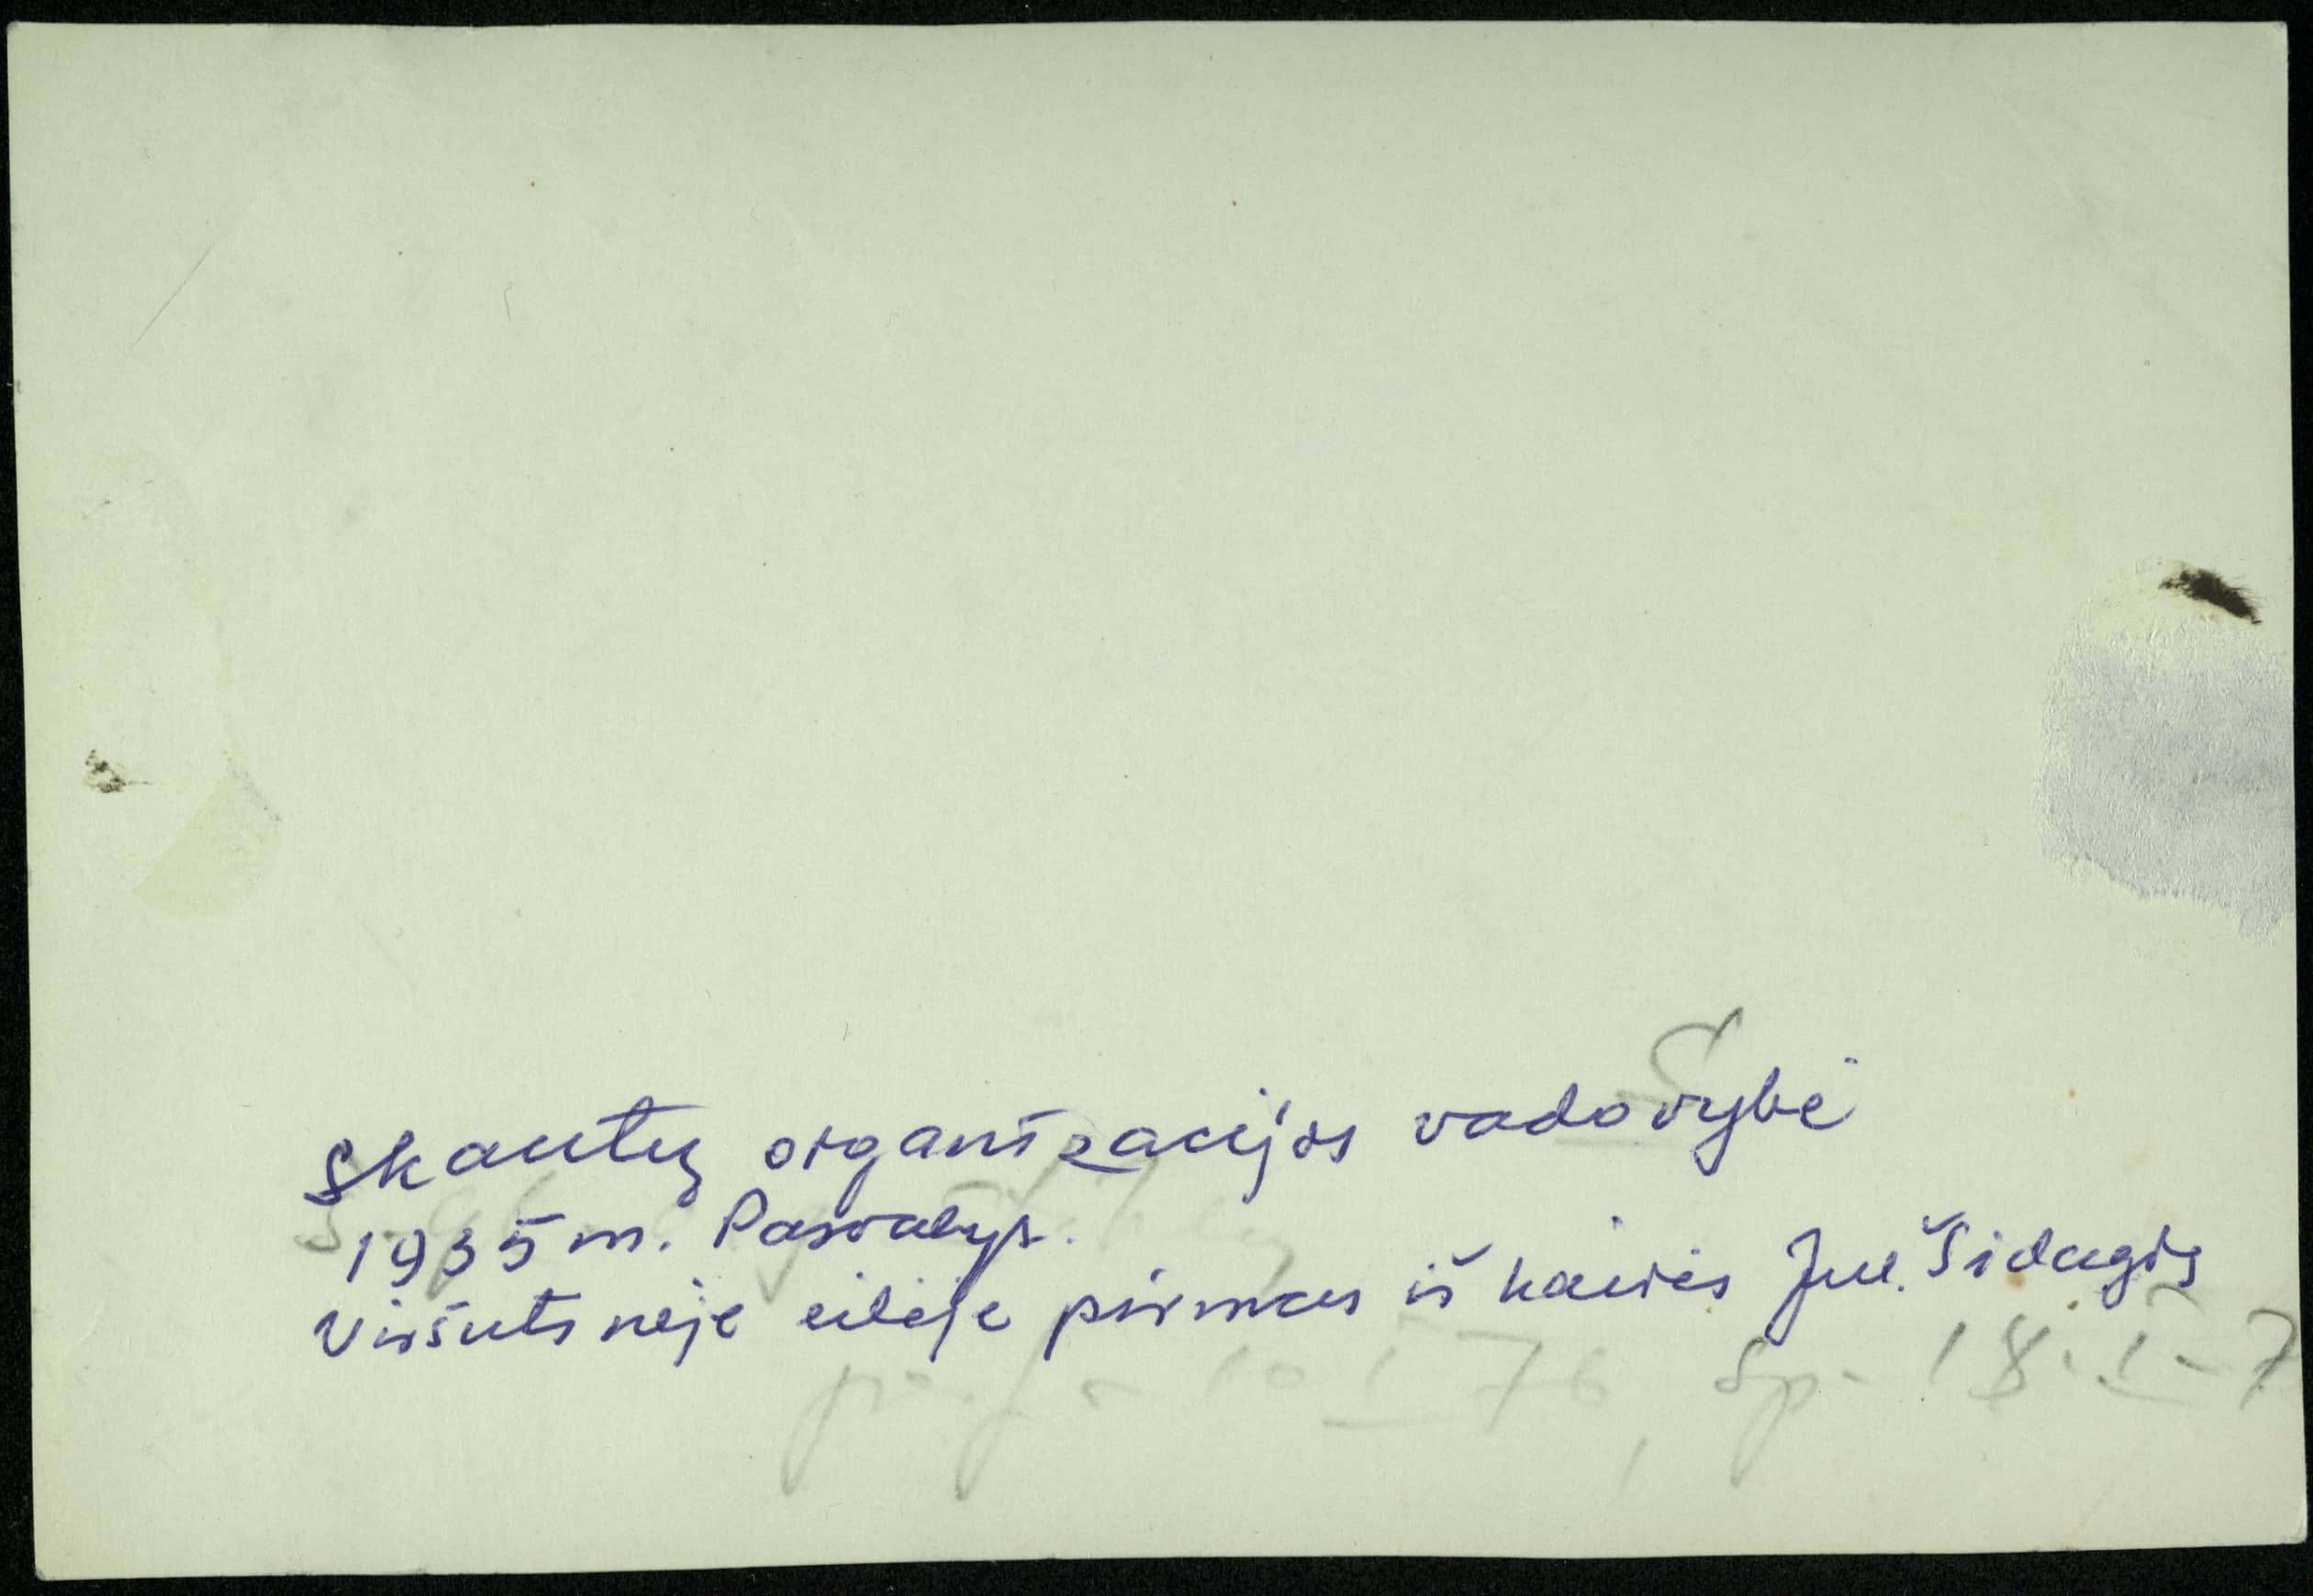 Skautų organizacijos vadovybė
1935 m. Pasvalys.
Viršutinėje eilėje pirmas iš kairės Jul. Šidagis
10 I 76, Sp. 18. I - 7